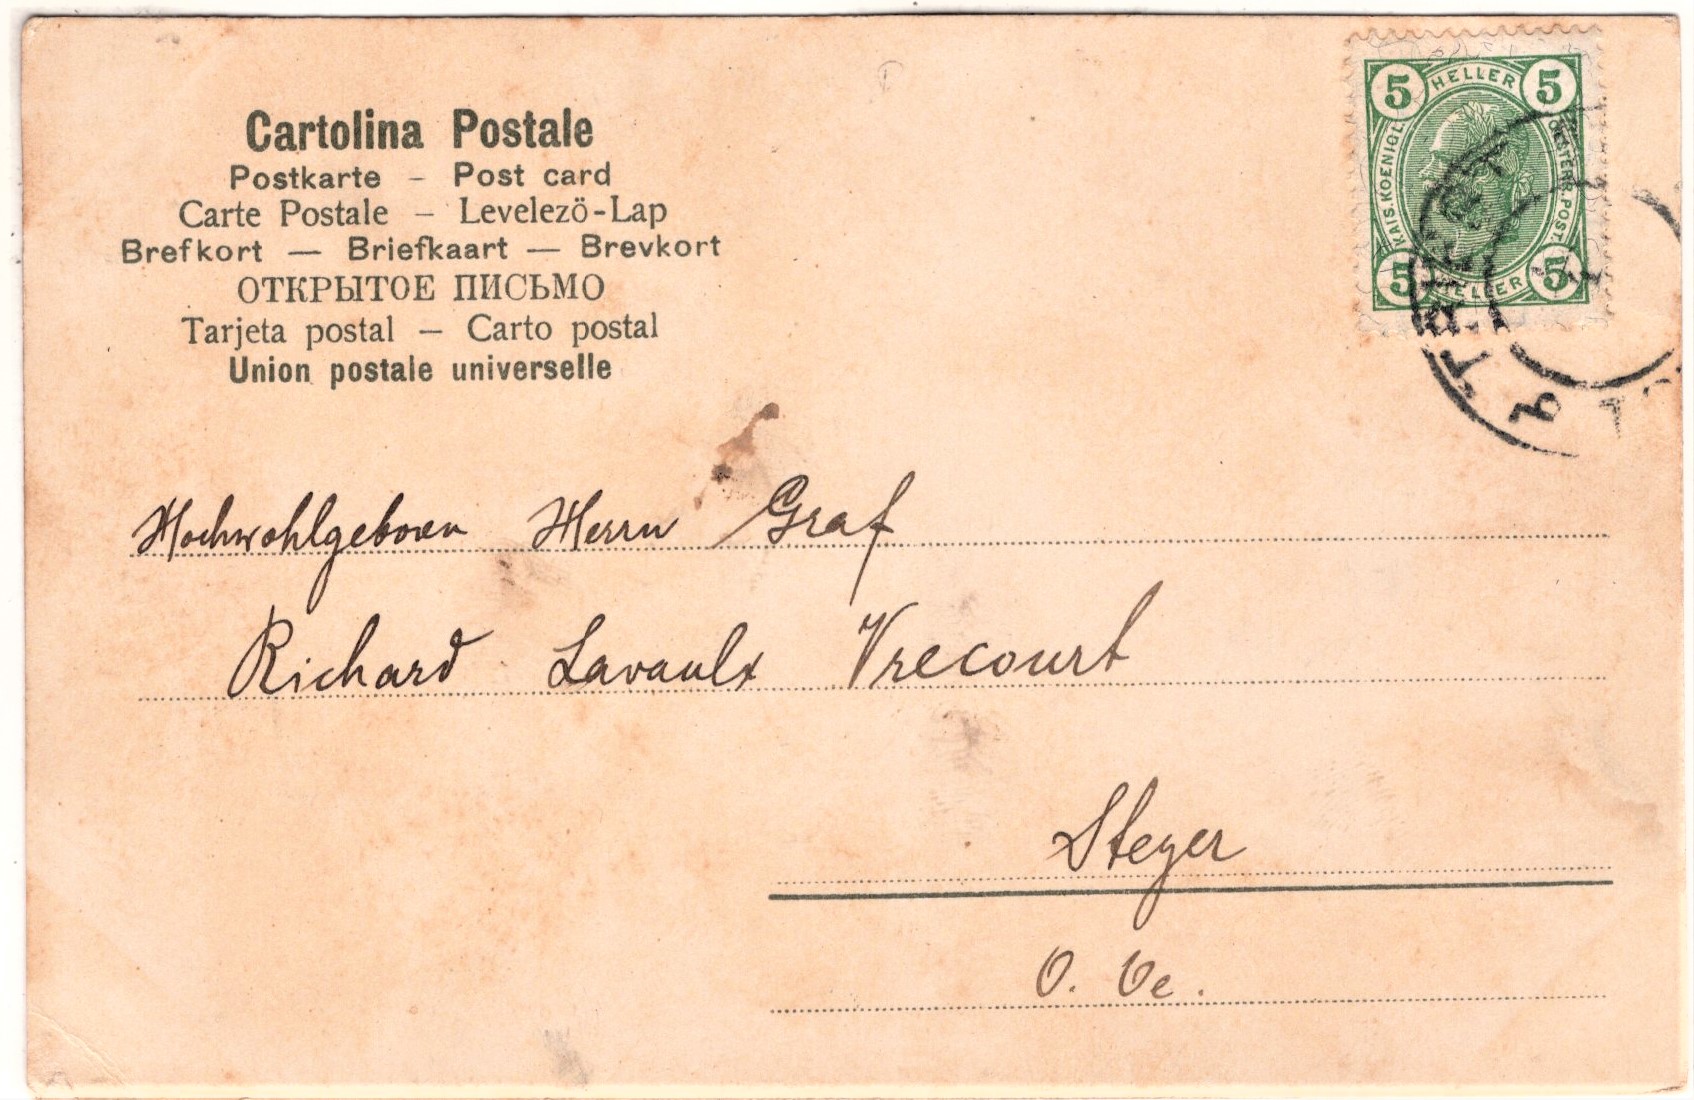 Cartolina Postale
Postkarte – Post card
Carte Postale – Levelezö-Lap
Brefkort — Briefkaart — Brevkort
ОТКРЫТОЕ ПИСЬМО
Tarjeta postal – Carto postal
Union postale universelle
5 HELLER 5
KAIS. KOENIGL. OESTERR. POST.
5 HELLER 5
Hochwohlgeboren Herrn Graf
Richard Lavaulx Vrecourt
Steyer
O. Oe.